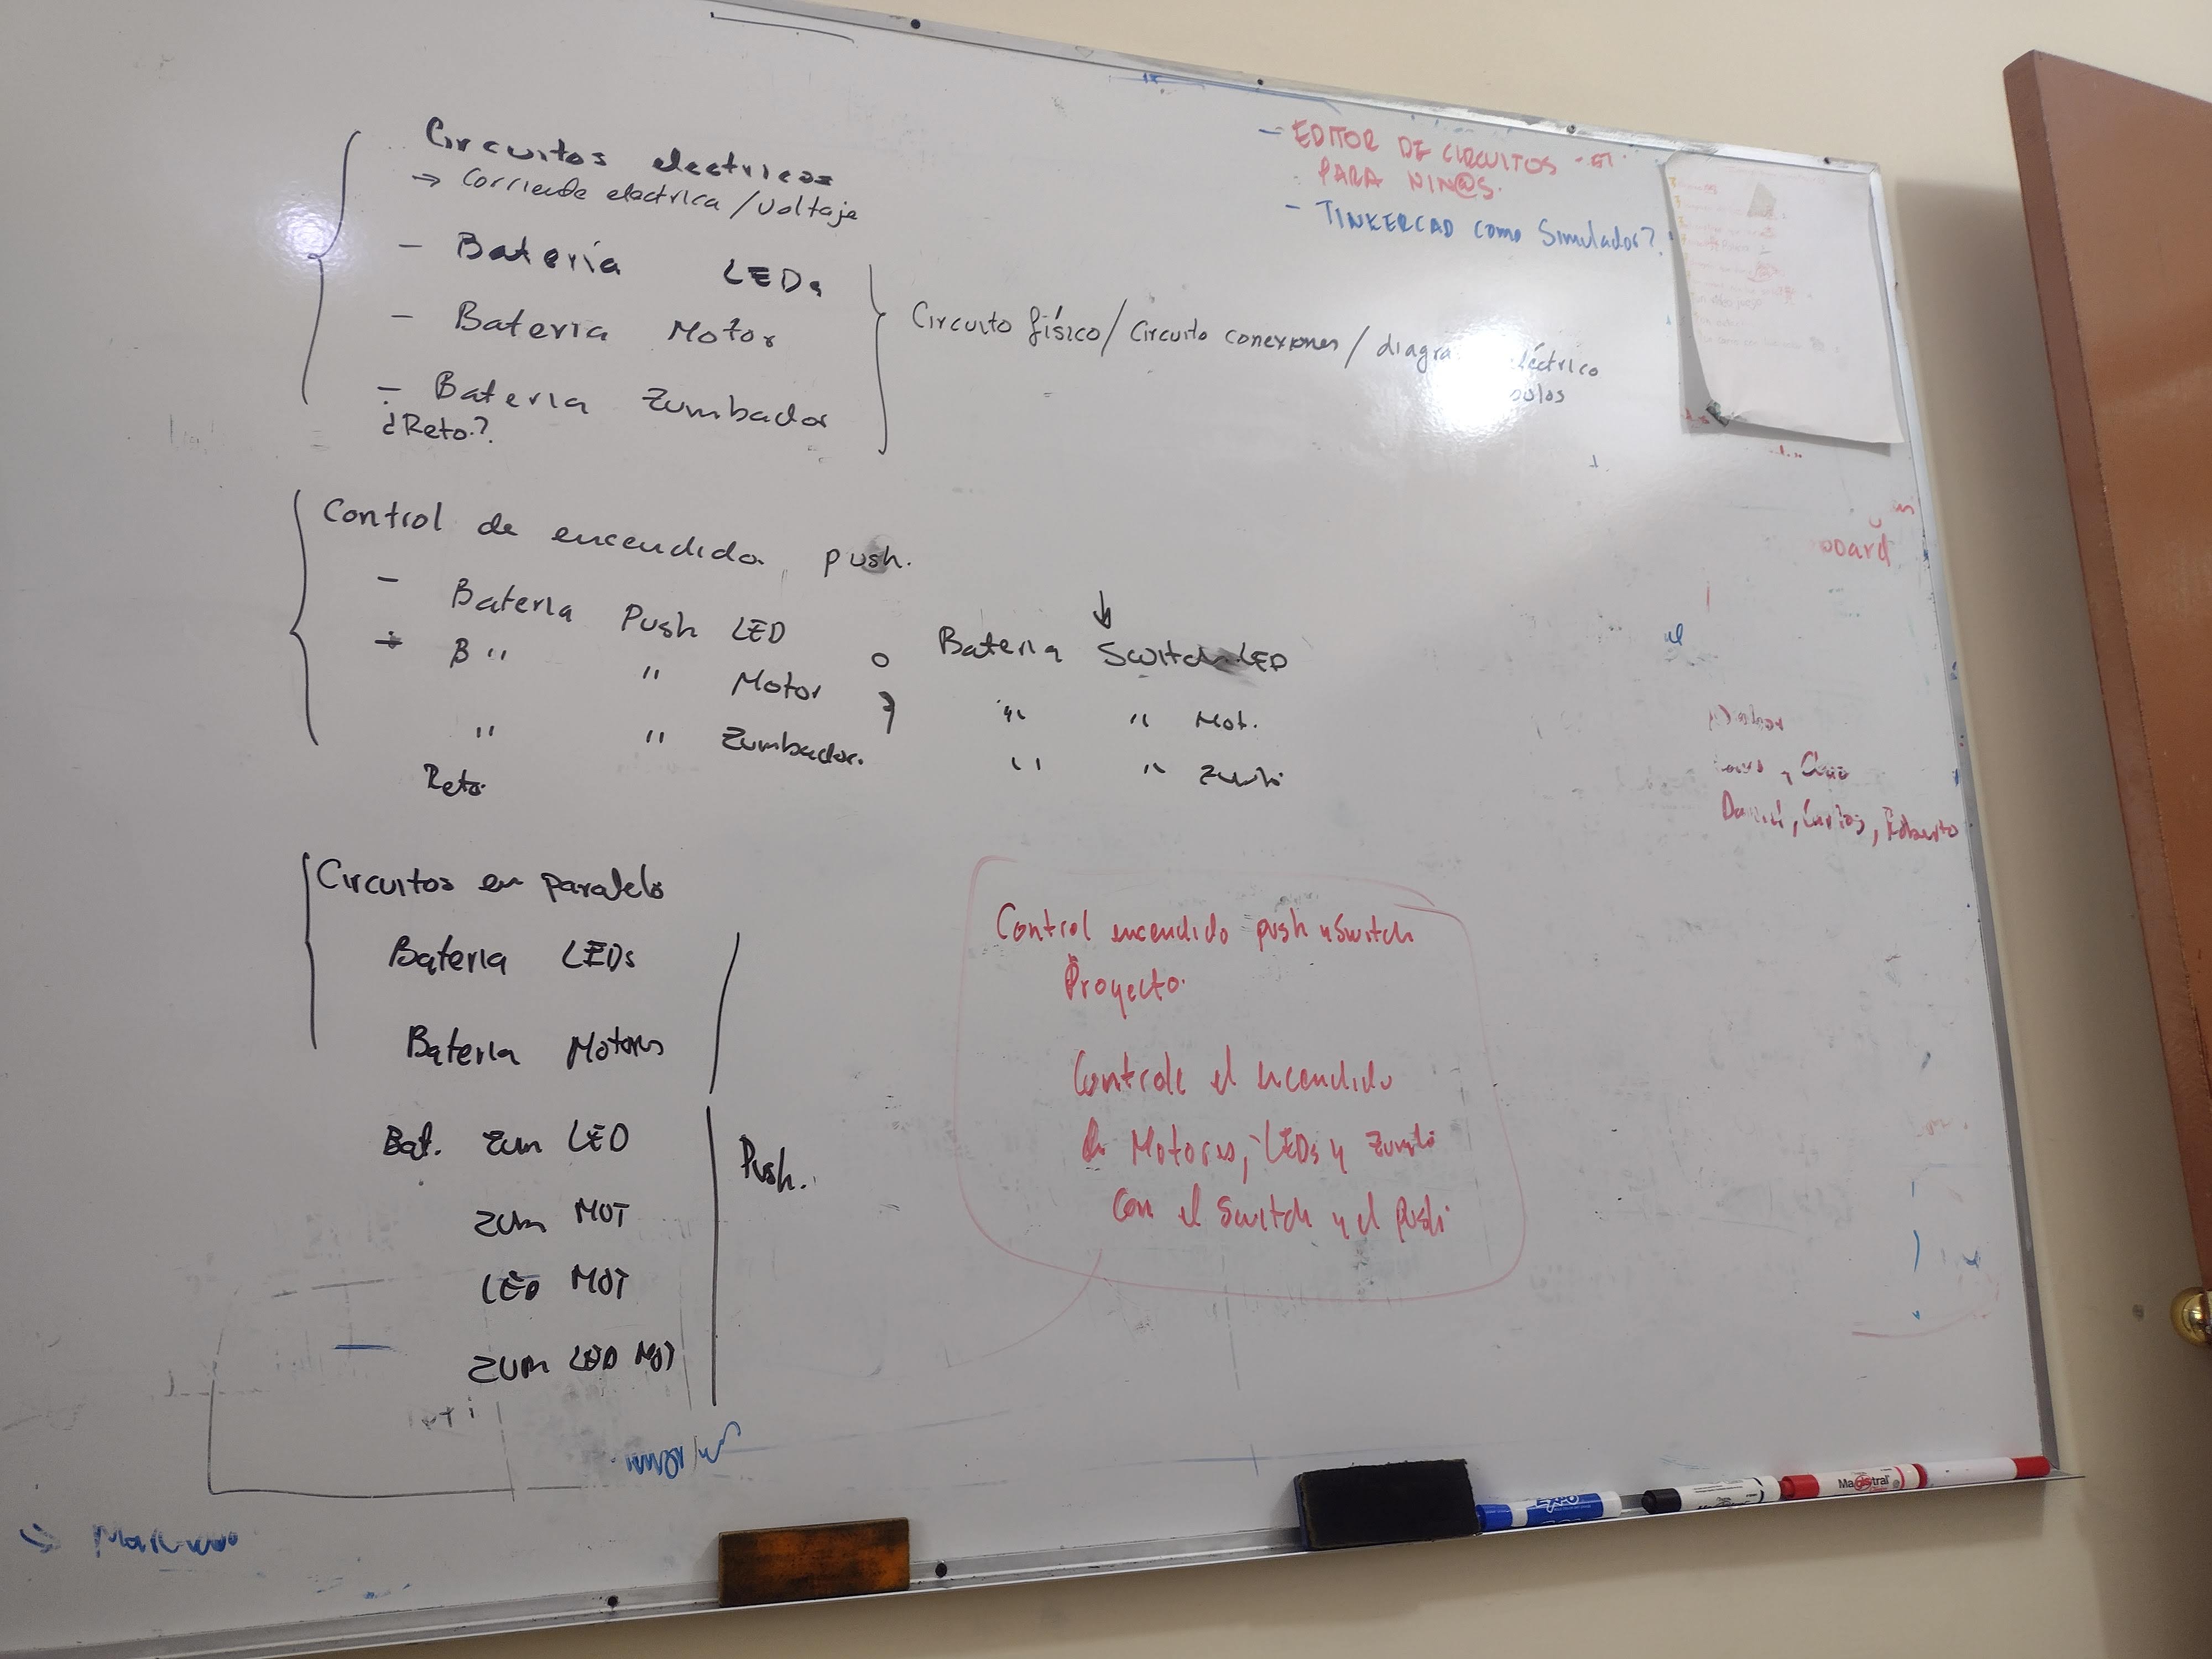 Circuitos electricos
→ Corriente electrica / voltaje
- Batería LEDs
- Bateria Motor
- Bateria Zumbador
¿Reto?
Circuito físico / Circuito conexiones / diagra éctrico
- EDITOR DE CIRCUITOS
PARA NIN@S.
- TINKERCAD como Simulador?
Control de encendido push.
- Bateria Push LED
B " " Motor
" " Zumbador.
Reto
o Bateria Switch LED
" " Mot.
" " Zumb
Circuitos en paralelo
Bateria LEDs
Bateria Motores
Bat. Zum LED
Zum MOT
LED MOT
ZUM LED MOT
Push.
Control encendido push y Switch
Proyecto.
Controle el encendido
de Motores, LEDs y Zumb
con el Switch y el push
oard
, Roberto
EXPO
Magistral